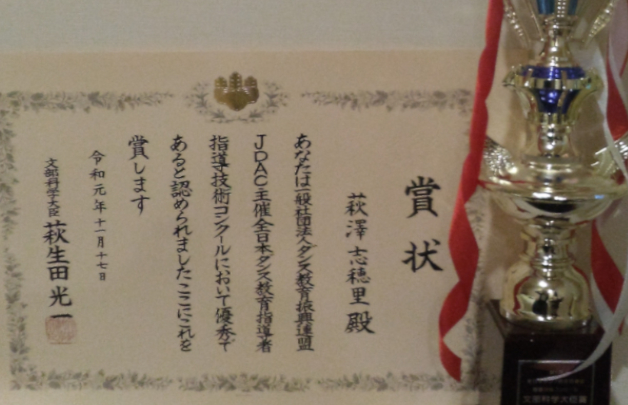 賞状
萩澤志穂里殿
あなたは一般社団法人ダンス教育振興連盟
JDAC主催全日本ダンス教育指導者
指導技術コンクールにおいて優秀で
あると認められましたここにこれを
賞します
令和元年十一月十七日
文部科学大臣 萩生田光一
文部科学大臣賞